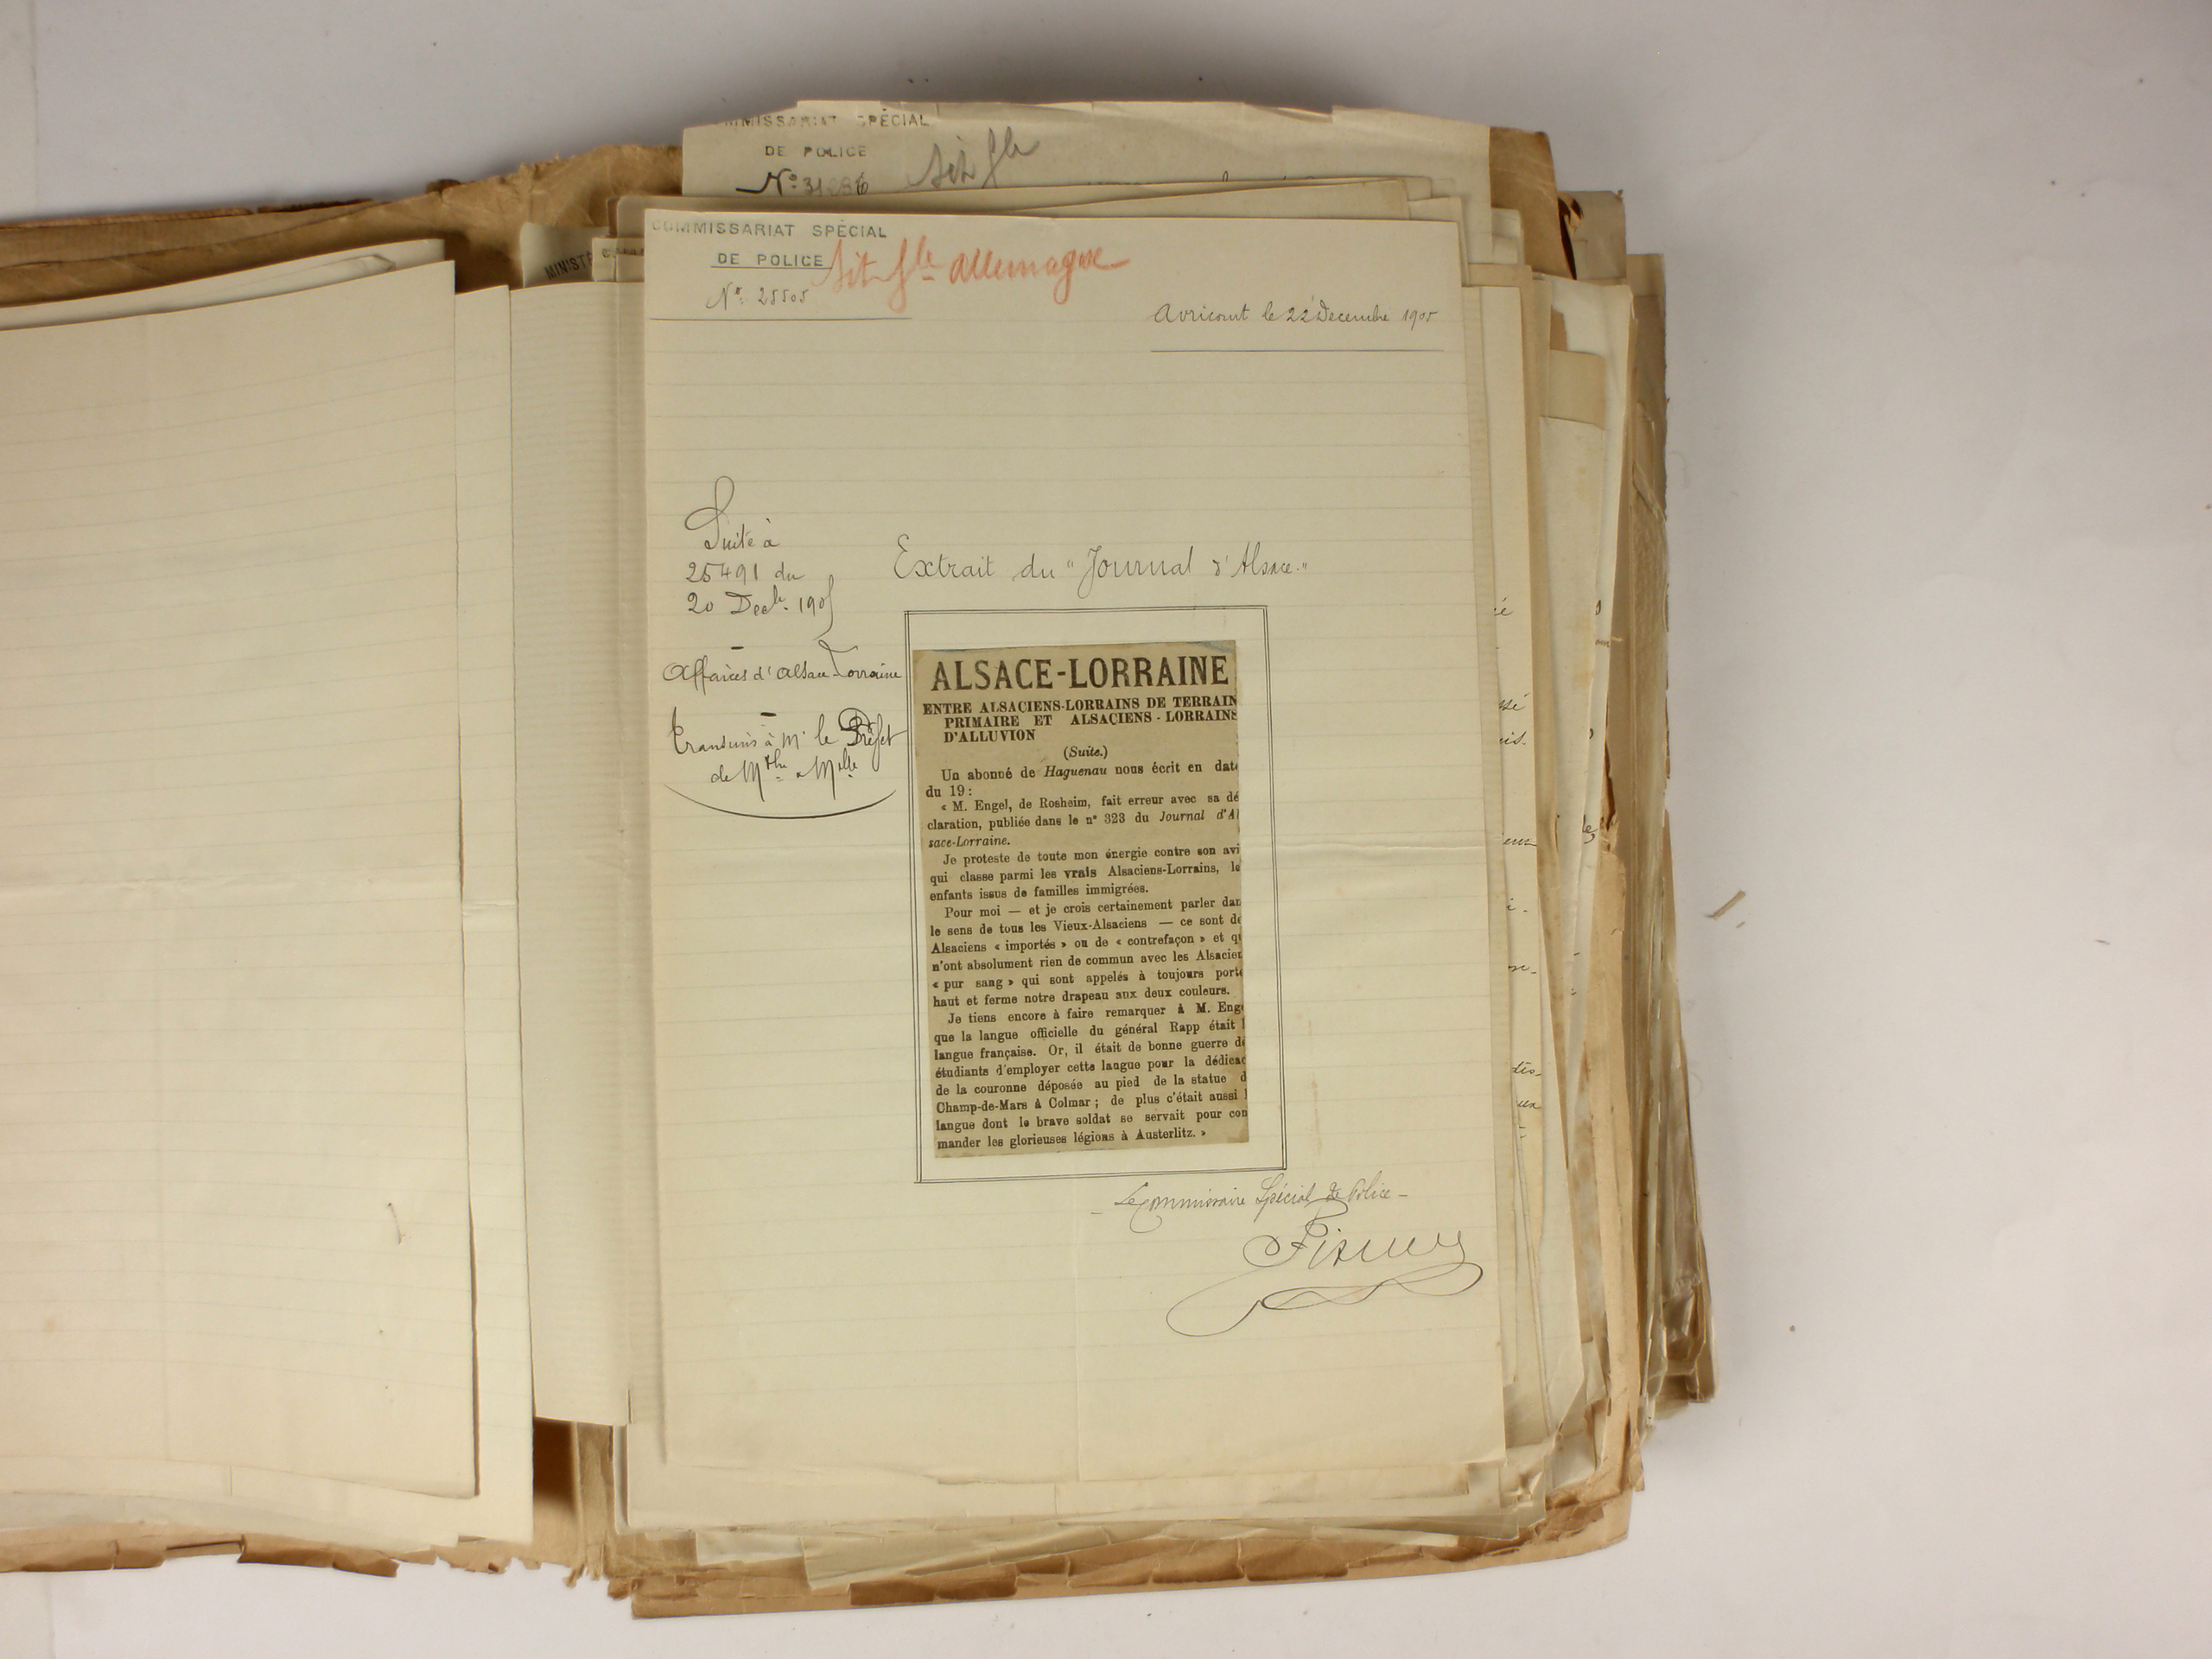 COMMISSARIAT SPÉCIAL
DE POLICE
MINISTE
COMMISSARIAT SPÉCIAL
DE POLICE
Sit Gle Allemagne
No 25505
Avricourt le 22 Décembre 1905
Suite à
25491 du
20 Decbe 1905
Affaires d'Alsace-Lorraine
Transmis à Mr le Préfet
de Mthe & Mlle
Extrait du "Journal d'Alsace."
ALSACE-LORRAINE
ENTRE ALSACIENS-LORRAINS DE TERRAIN
PRIMAIRE ET ALSACIENS-LORRAINS
D'ALLUVION
(Suite.)
Un abonné de Haguenau nous écrit en date
du 19 :
« M. Engel, de Rosheim, fait erreur avec sa dé
claration, publiée dans le n° 323 du Journal d'Al
sace-Lorraine.
Je proteste de toute mon énergie contre son avi
qui classe parmi les vrais Alsaciens-Lorrains, le
enfants issus de familles immigrées.
Pour moi — et je crois certainement parler dan
le sens de tous les Vieux-Alsaciens — ce sont de
Alsaciens « importés » ou de « contrefaçon » et qu
n'ont absolument rien de commun avec les Alsacien
« pur sang » qui sont appelés à toujours porte
haut et ferme notre drapeau aux deux couleurs.
Je tiens encore à faire remarquer à M. Enge
que la langue officielle du général Rapp était l
langue française. Or, il était de bonne guerre de
étudiants d'employer cette langue pour la dédicac
de la couronne déposée au pied de la statue d
Champ-de-Mars à Colmar ; de plus c'était aussi l
langue dont le brave soldat se servait pour com
mander les glorieuses légions à Austerlitz. »
Le Commissaire Spécial de Police